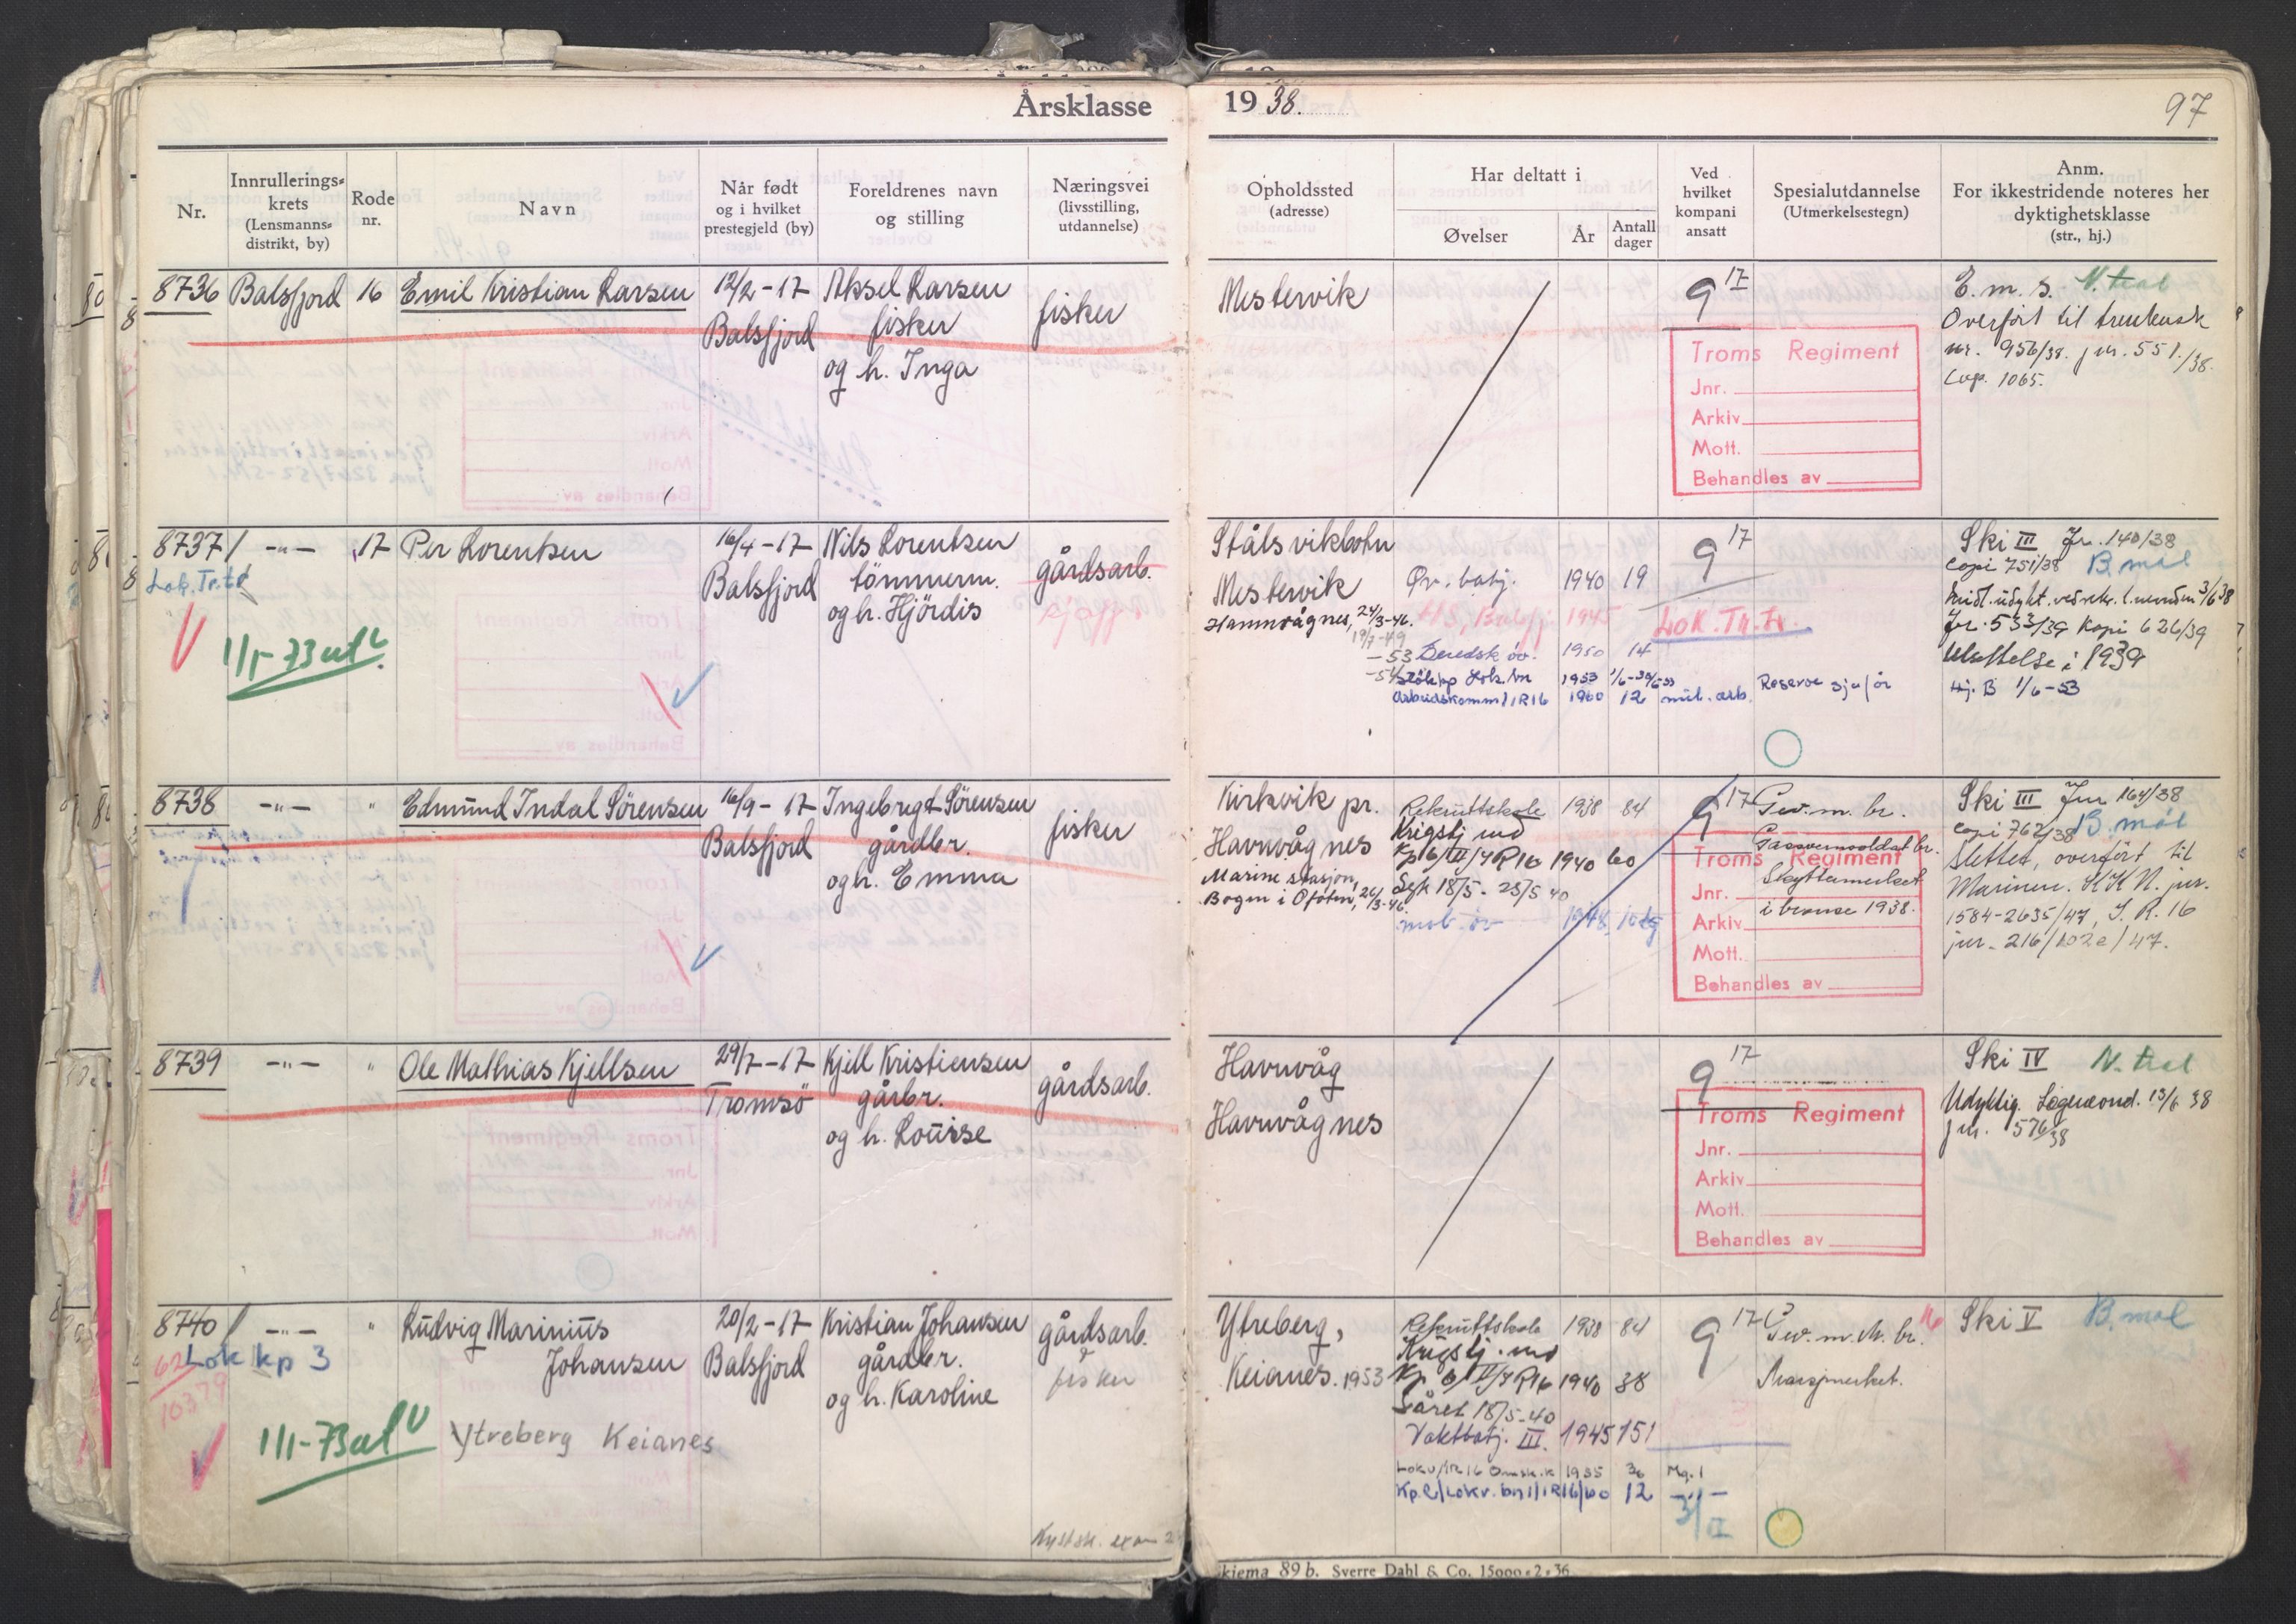 Årsklasse 1938.
97
Nr.
Innrullerings-
krets
(Lensmanns-
distrikt, by)
Rode
nr.
Navn
Når født
og i hvilket
prestegjeld (by)
Foreldrenes navn
og stilling
Næringsvei
(livsstilling,
utdannelse)
Opholdssted
(adresse)
Har deltatt i
Øvelser
År
Antall
dager
Ved
hvilket
kompani
ansatt
Spesialutdannelse
(Utmerkelsestegn)
Anm.
For ikkestridende noteres her
dyktighetsklasse
(str., hj.)
8736 Balsfjord 16 Emil Kristian Larsen
12/2-17
Balsfjord
Aksel Larsen
fisker
og h. Inga
fisker
Mestervik
9 17
Troms Regiment
Jnr.
Arkiv
Mott.
Behandles av
E. m. s.
Overført til
nr. 956/38. jnr. 551./38.
Cop. 1065.
8737 -"- 17 Per Lorentsen
1/1-73 utl
16/4-17
Balsfjord
Nils Lorentsen
tömmerm.
og h. Hjördis
gårdsarb.
Stålsvikbotn
Mestervik
Havnvågnes, 24/3-46.
-53
-54
Øv. batj. 1940 19
HS, Balsfj 1945
Beredsk. öv. 1950 14
1953 1/6-30/6-53
Arbeidskomm 1/IR16 1960 12 mil. arb.
9 17
Lok. Tr.
Reserve sjafør
Ski III Jr. 140/38
Copi 751/38 B. mål
Jr. 533/39 Kopi 626/39
Utsettelse i 1939
Hj. B 1/6-53
8738 -"- " Edmund Indal Sörensen
16/9-17
Balsfjord
Ingebrigt Sörensen
gårdbr.
og h. Emma
fisker
Kirkvik pr.
Havnvågnes
Marine stasjon,
Bogen i Ofoten, 26/3-46.
Rekruttskole 1938 84
Krigstj. ved
Kp 6/II/IR16 1940 60
Syk 18/5-25/5 40
mob. öv 1948 10 dg
9 17
Gev. m. br.
Gassvernsoldat br.
Skyttermerket
i bronse 1938.
Troms Regiment
Jnr.
Arkiv
Mott.
Behandles av
Ski III Jnr 164/38
Copi 762/38 B. mål
Slettet, overført til
Marinen. KKN. jnr.
1584-2635/47, I. R. 16
jnr. 216/202e/47.
8739 -"- " Ole Mathias Kjellsen
29/7-17
Tromsö
Kjell Kristiensen
gårbr.
og h. Lovise
gårdsarb.
Havnvåg
Havnvågnes
9 17
Troms Regiment
Jnr.
Arkiv
Mott.
Behandles av
Ski IV
Udyktig. Legeund. 13/6 38
jnr. 576/38
8740 -"- " Ludvig Marinius
Johansen
Lok kp 3
62
10379
1/1-73 utl
Ytreberg Keianes
20/2-17
Balsfjord
Kristian Johansen
gårdbr.
og h. Karoline
gårdsarb.
fisker
Ytreberg,
Keianes. 1953
Rekruttskole 1938 84
Krigstj. ved
Kp 6/II/IR16 1940 38
Såret 18/5-40
Vaktbatj. III. 1945 151
1955 30 Mg. 1
Kp.2/Lokv.bn1/IR16/60 12 -"-
9 17
Gev. m. M. br.
Marsjmerket.
Ski V B. mål
3/II
kjema 89 b. Sverre Dahl & Co. 15000-2-36